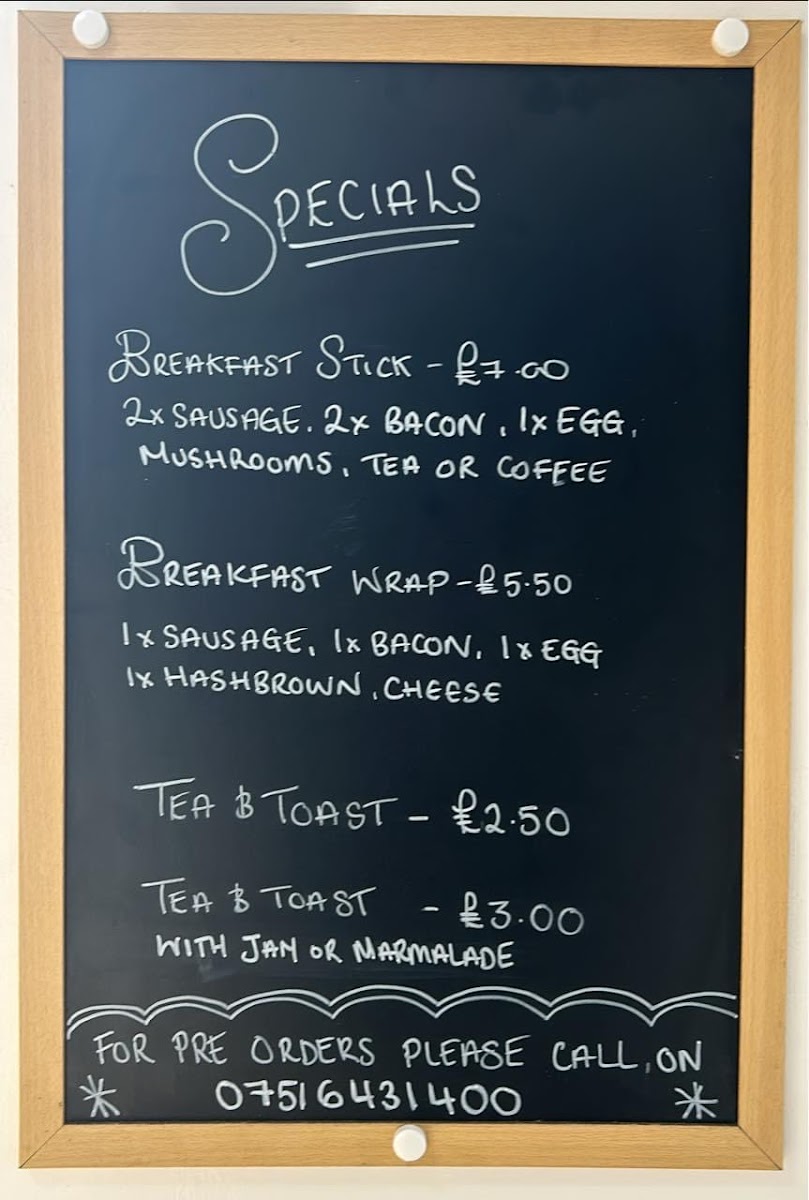 SPECIALS
BREAKFAST STICK - £7.00
2x SAUSAGE, 2x BACON, 1x EGG,
MUSHROOMS, TEA OR COFFEE
BREAKFAST WRAP - £5.50
1x SAUSAGE, 1x BACON, 1x EGG
1x HASHBROWN, CHEESE
TEA & TOAST - £2.50
TEA & TOAST - £3.00
WITH JAM OR MARMALADE
FOR PRE ORDERS PLEASE CALL, ON
* 07516431400 *